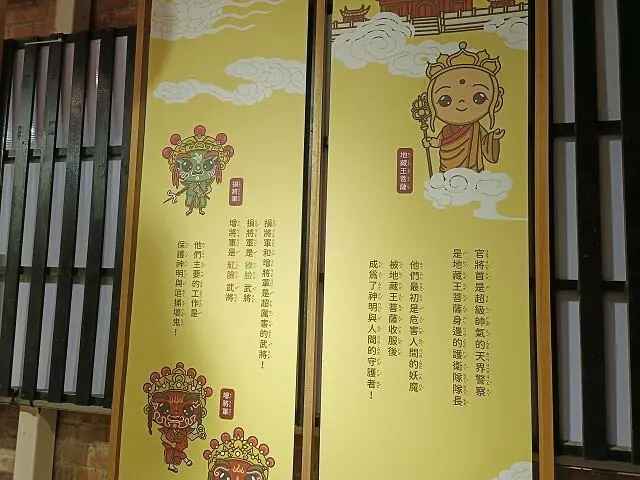 地藏王菩薩
官將首是超級帥氣的天界警察
是地藏王菩薩身邊的護衛隊隊長
他們最初是危害人間的妖魔
被地藏王菩薩收服後
成為了神明與人間的守護者！
損將軍
損將軍和增將軍是超厲害的武將！
損將軍是 綠臉 武將
增將軍是 紅臉 武將
他們主要的工作是
保護神明與追捕壞鬼！
增將軍